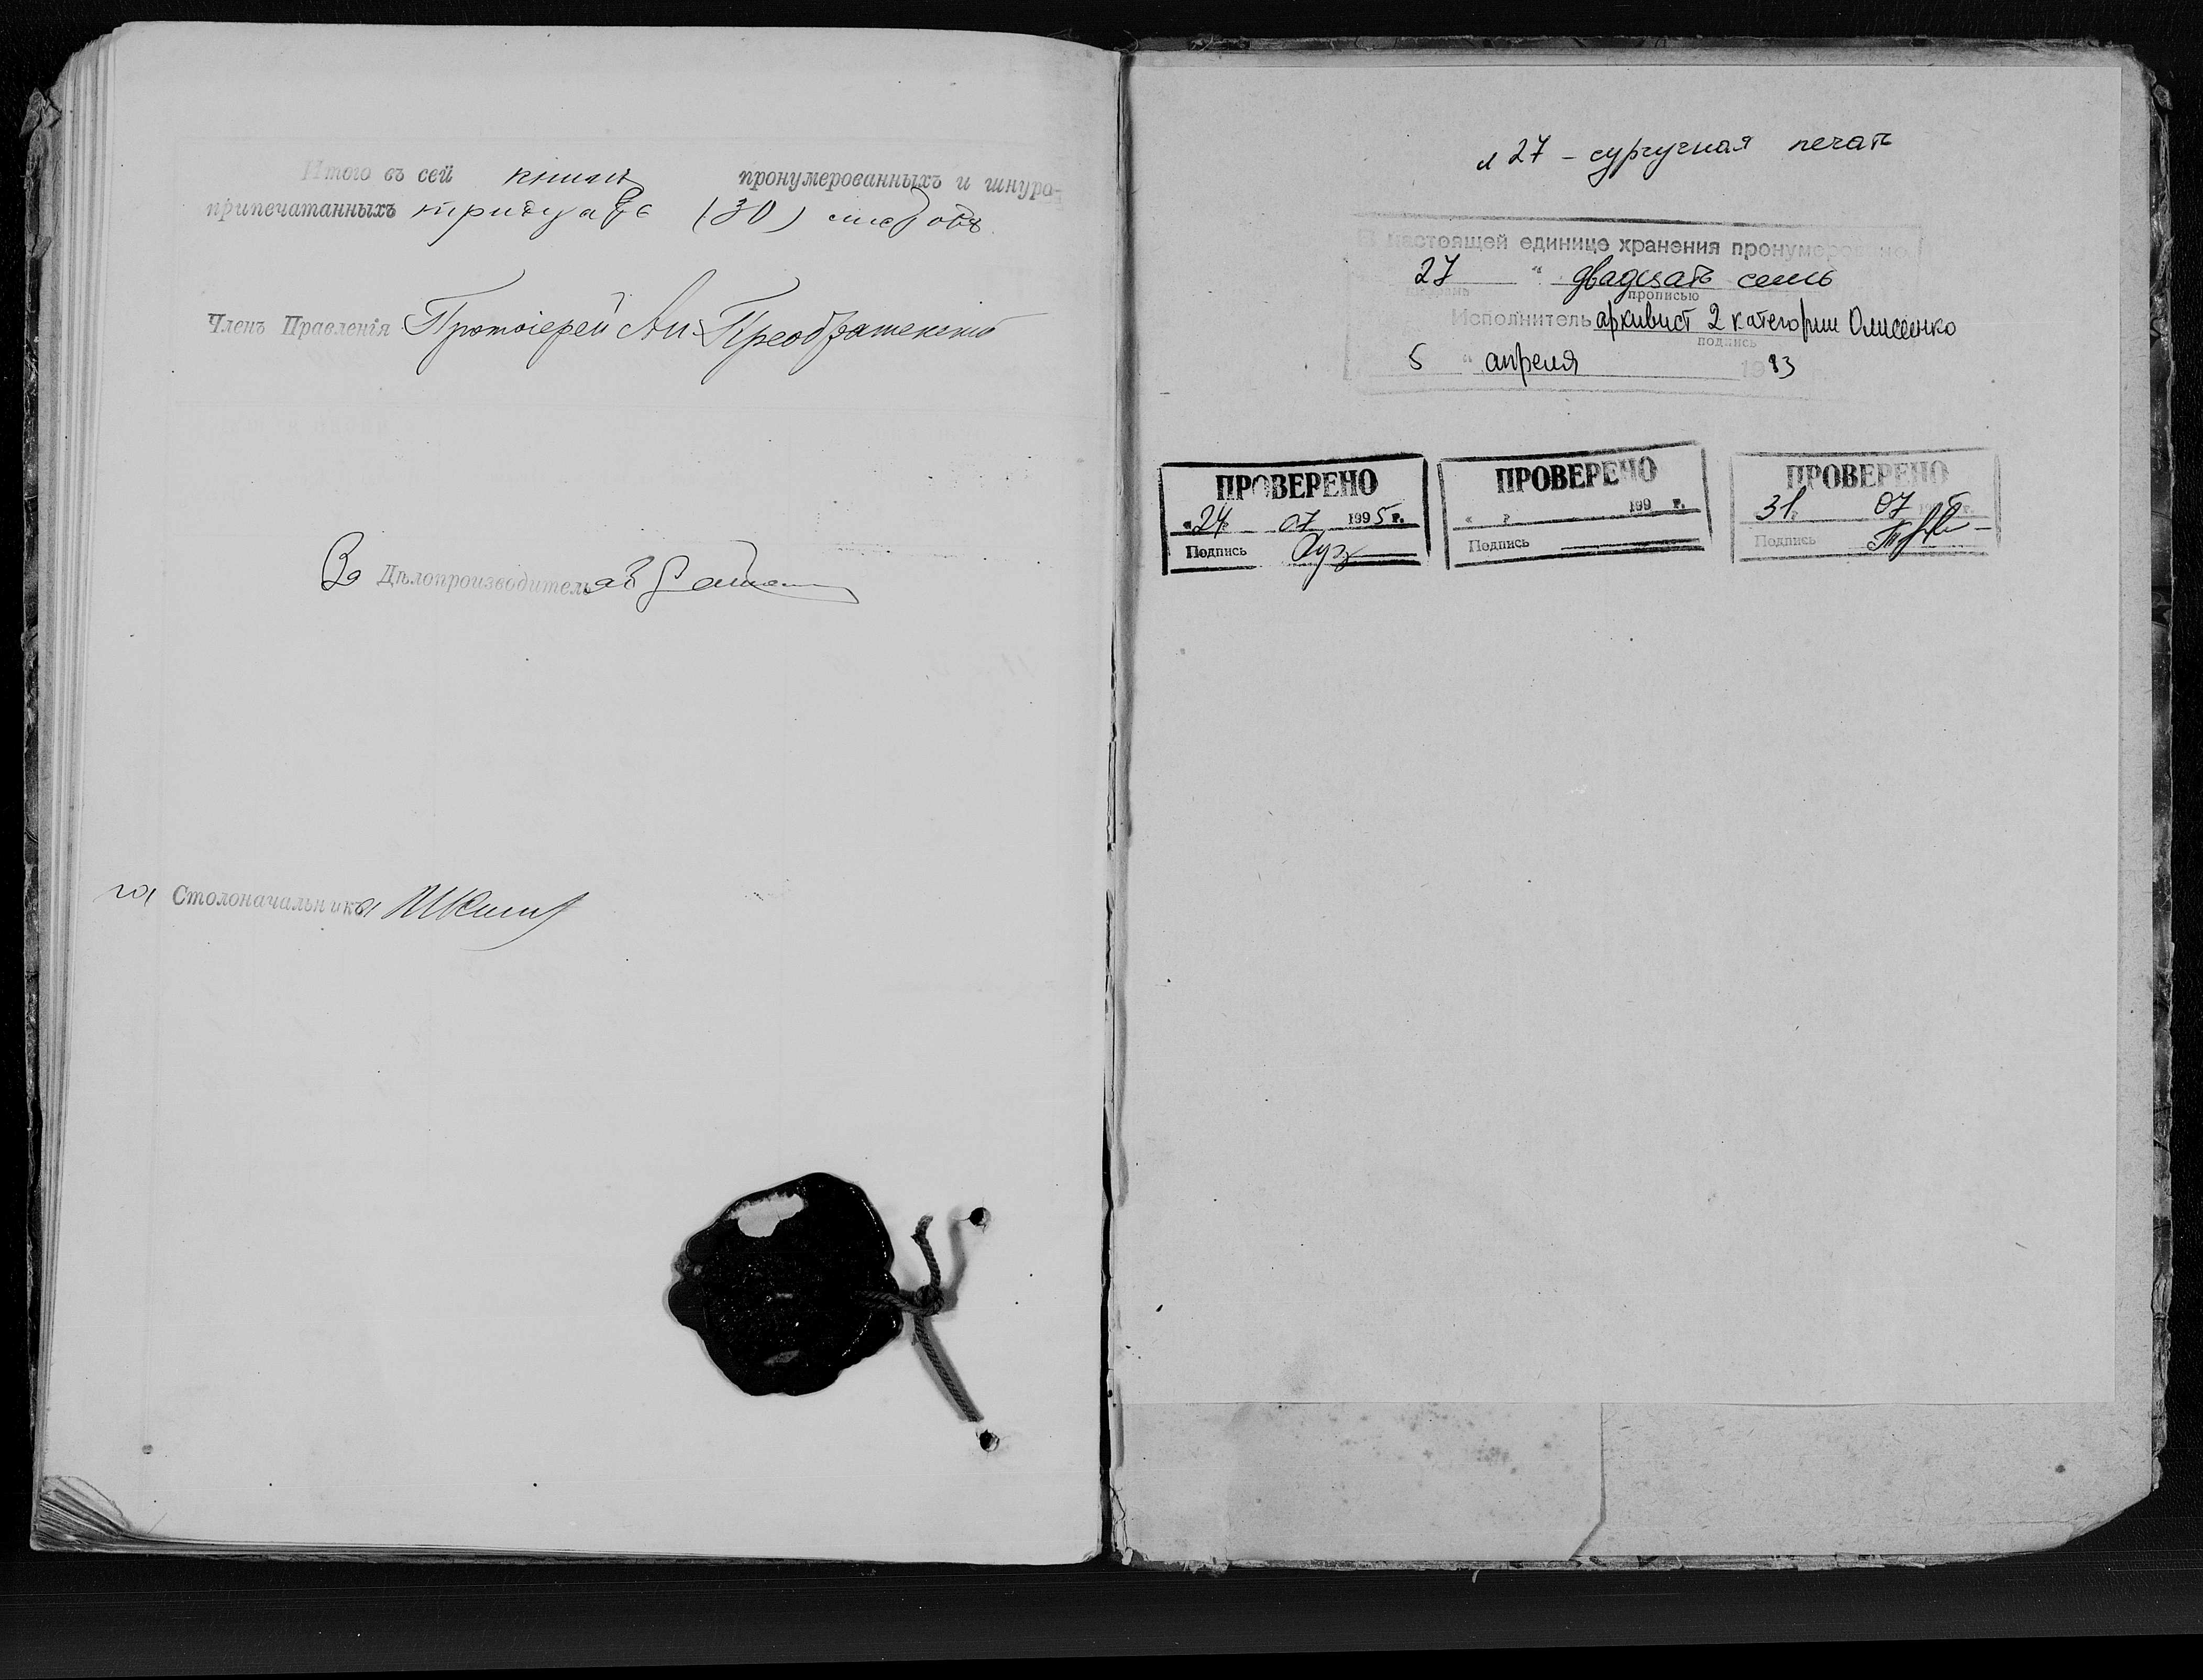 Итого въ сей книги пронумерованныхъ и шнуро-
припечатанныхъ тридцать (30) листовъ
Членъ Правленія Протоіерей Ал. Преображенскій
За Дѣлопроизводитель
за Столоначальника
л 27 – сургучная печать
В настоящей единице хранения пронумеровано
27 " двадцать семь
прописью
Исполнитель архивист 2 категории
подпись
5 " апреля 1993
ПРОВЕРЕНО
«24» 07 1995 г.
Подпись
ПРОВЕРЕНО
« » 199 г.
Подпись
ПРОВЕРЕНО
31 07 г.
Подпись